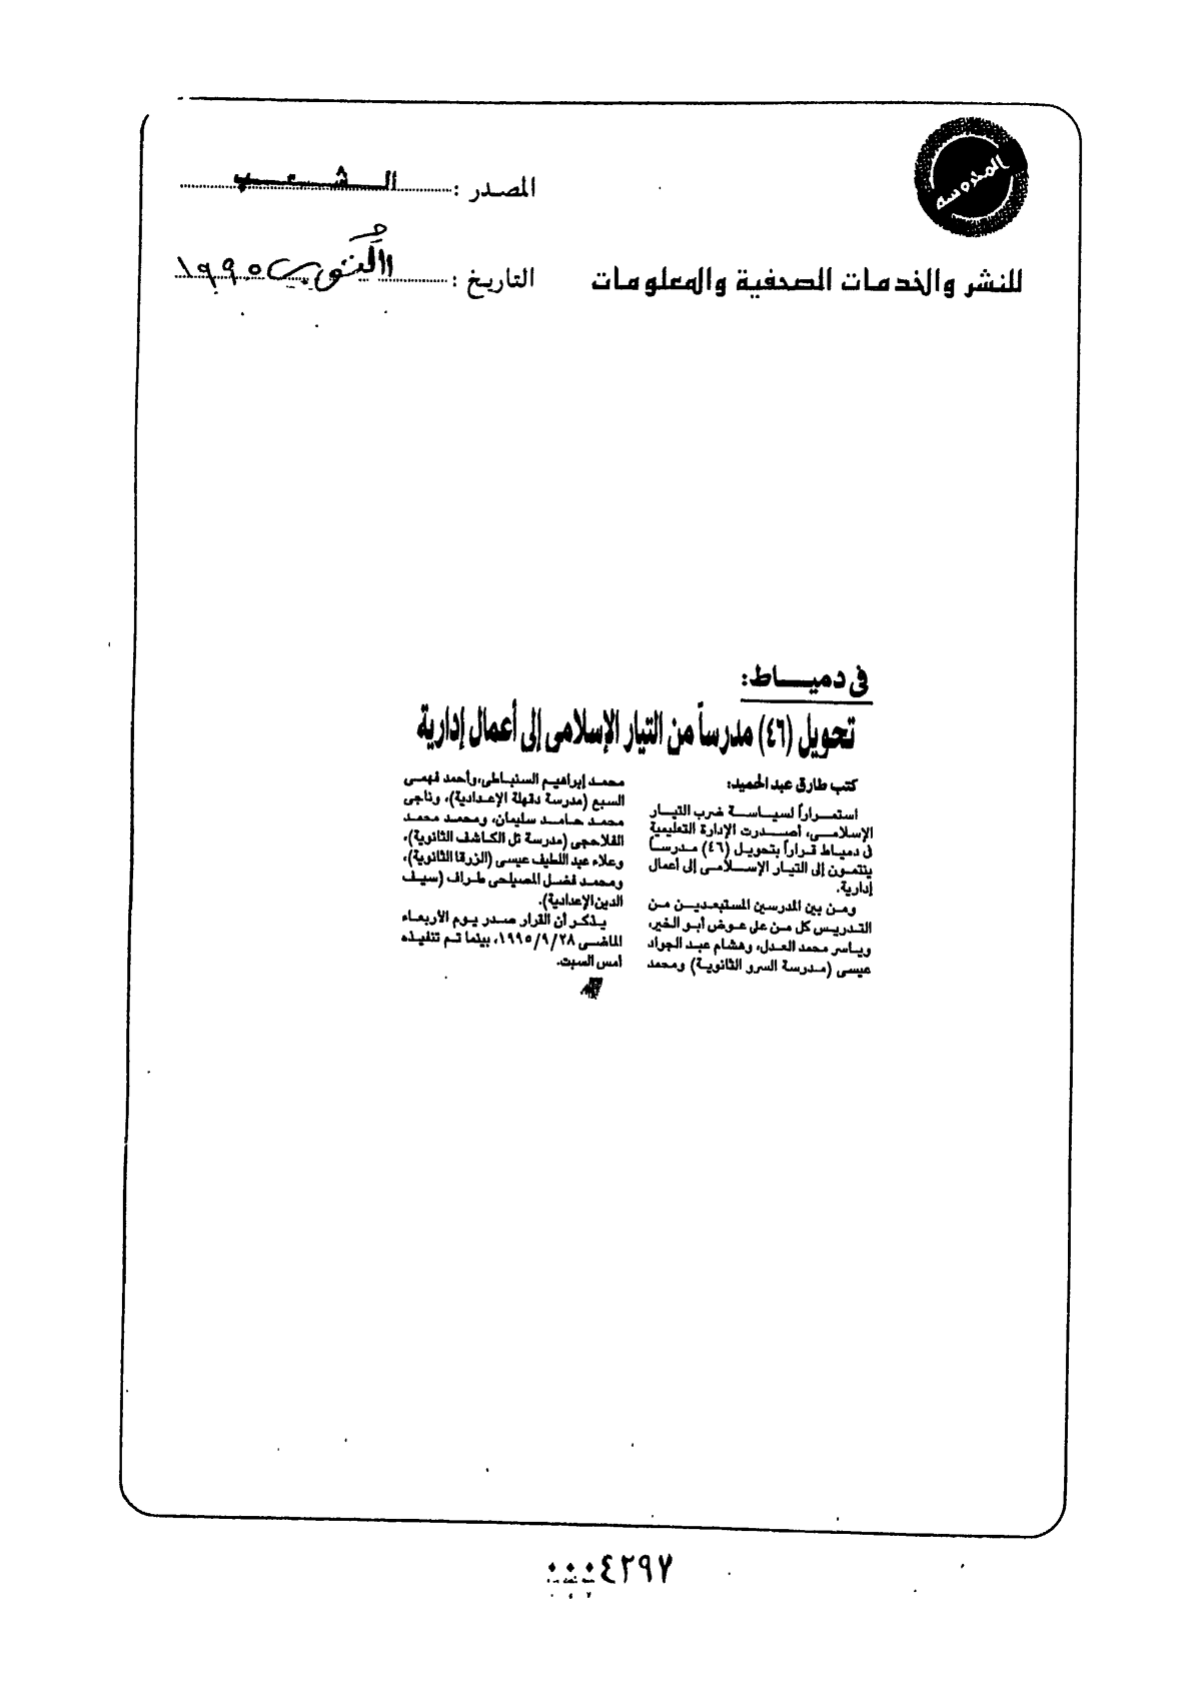 المحروسة
للنشر والخدمات الصحفية والمعلومات
المصدر : الشعب
التاريخ : أكتوبر ١٩٩٥
فى دمياط:
تحويل (٤٦) مدرساً من التيار الإسلامى إلى أعمال إدارية
كتب طارق عبد الحميد:
استمراراً لسياسة ضرب التيار
الإسلامى، أصدرت الإدارة التعليمية
فى دمياط قراراً بتحويل (٤٦) مدرساً
ينتمون إلى التيار الإسلامى إلى أعمال
إدارية.
ومن بين المدرسين المستبعدين من
التدريس كل من على عوض أبو الخير،
وياسر محمد العدل، وهشام عبد الجواد
عيسى (مدرسة السرو الثانوية) ومحمد
محمد إبراهيم السنباطى،وأحمد فهمى
السبع (مدرسة دقهلة الإعدادية)، وناجى
محمد حامد سليمان، ومحمد محمد
الفلاحجى (مدرسة تل الكاشف الثانوية)،
وعلاء عبد اللطيف عيسى (الزرقا الثانوية)،
ومحمد فضل المصيلحى طراف (سيف
الدين الإعدادية).
يذكر أن القرار صدر يوم الأربعاء
الماضى ١٩٩٥/٩/٢٨، بينما تم تنفيذه
أمس السبت.
٠٠٠٤٢٩٧